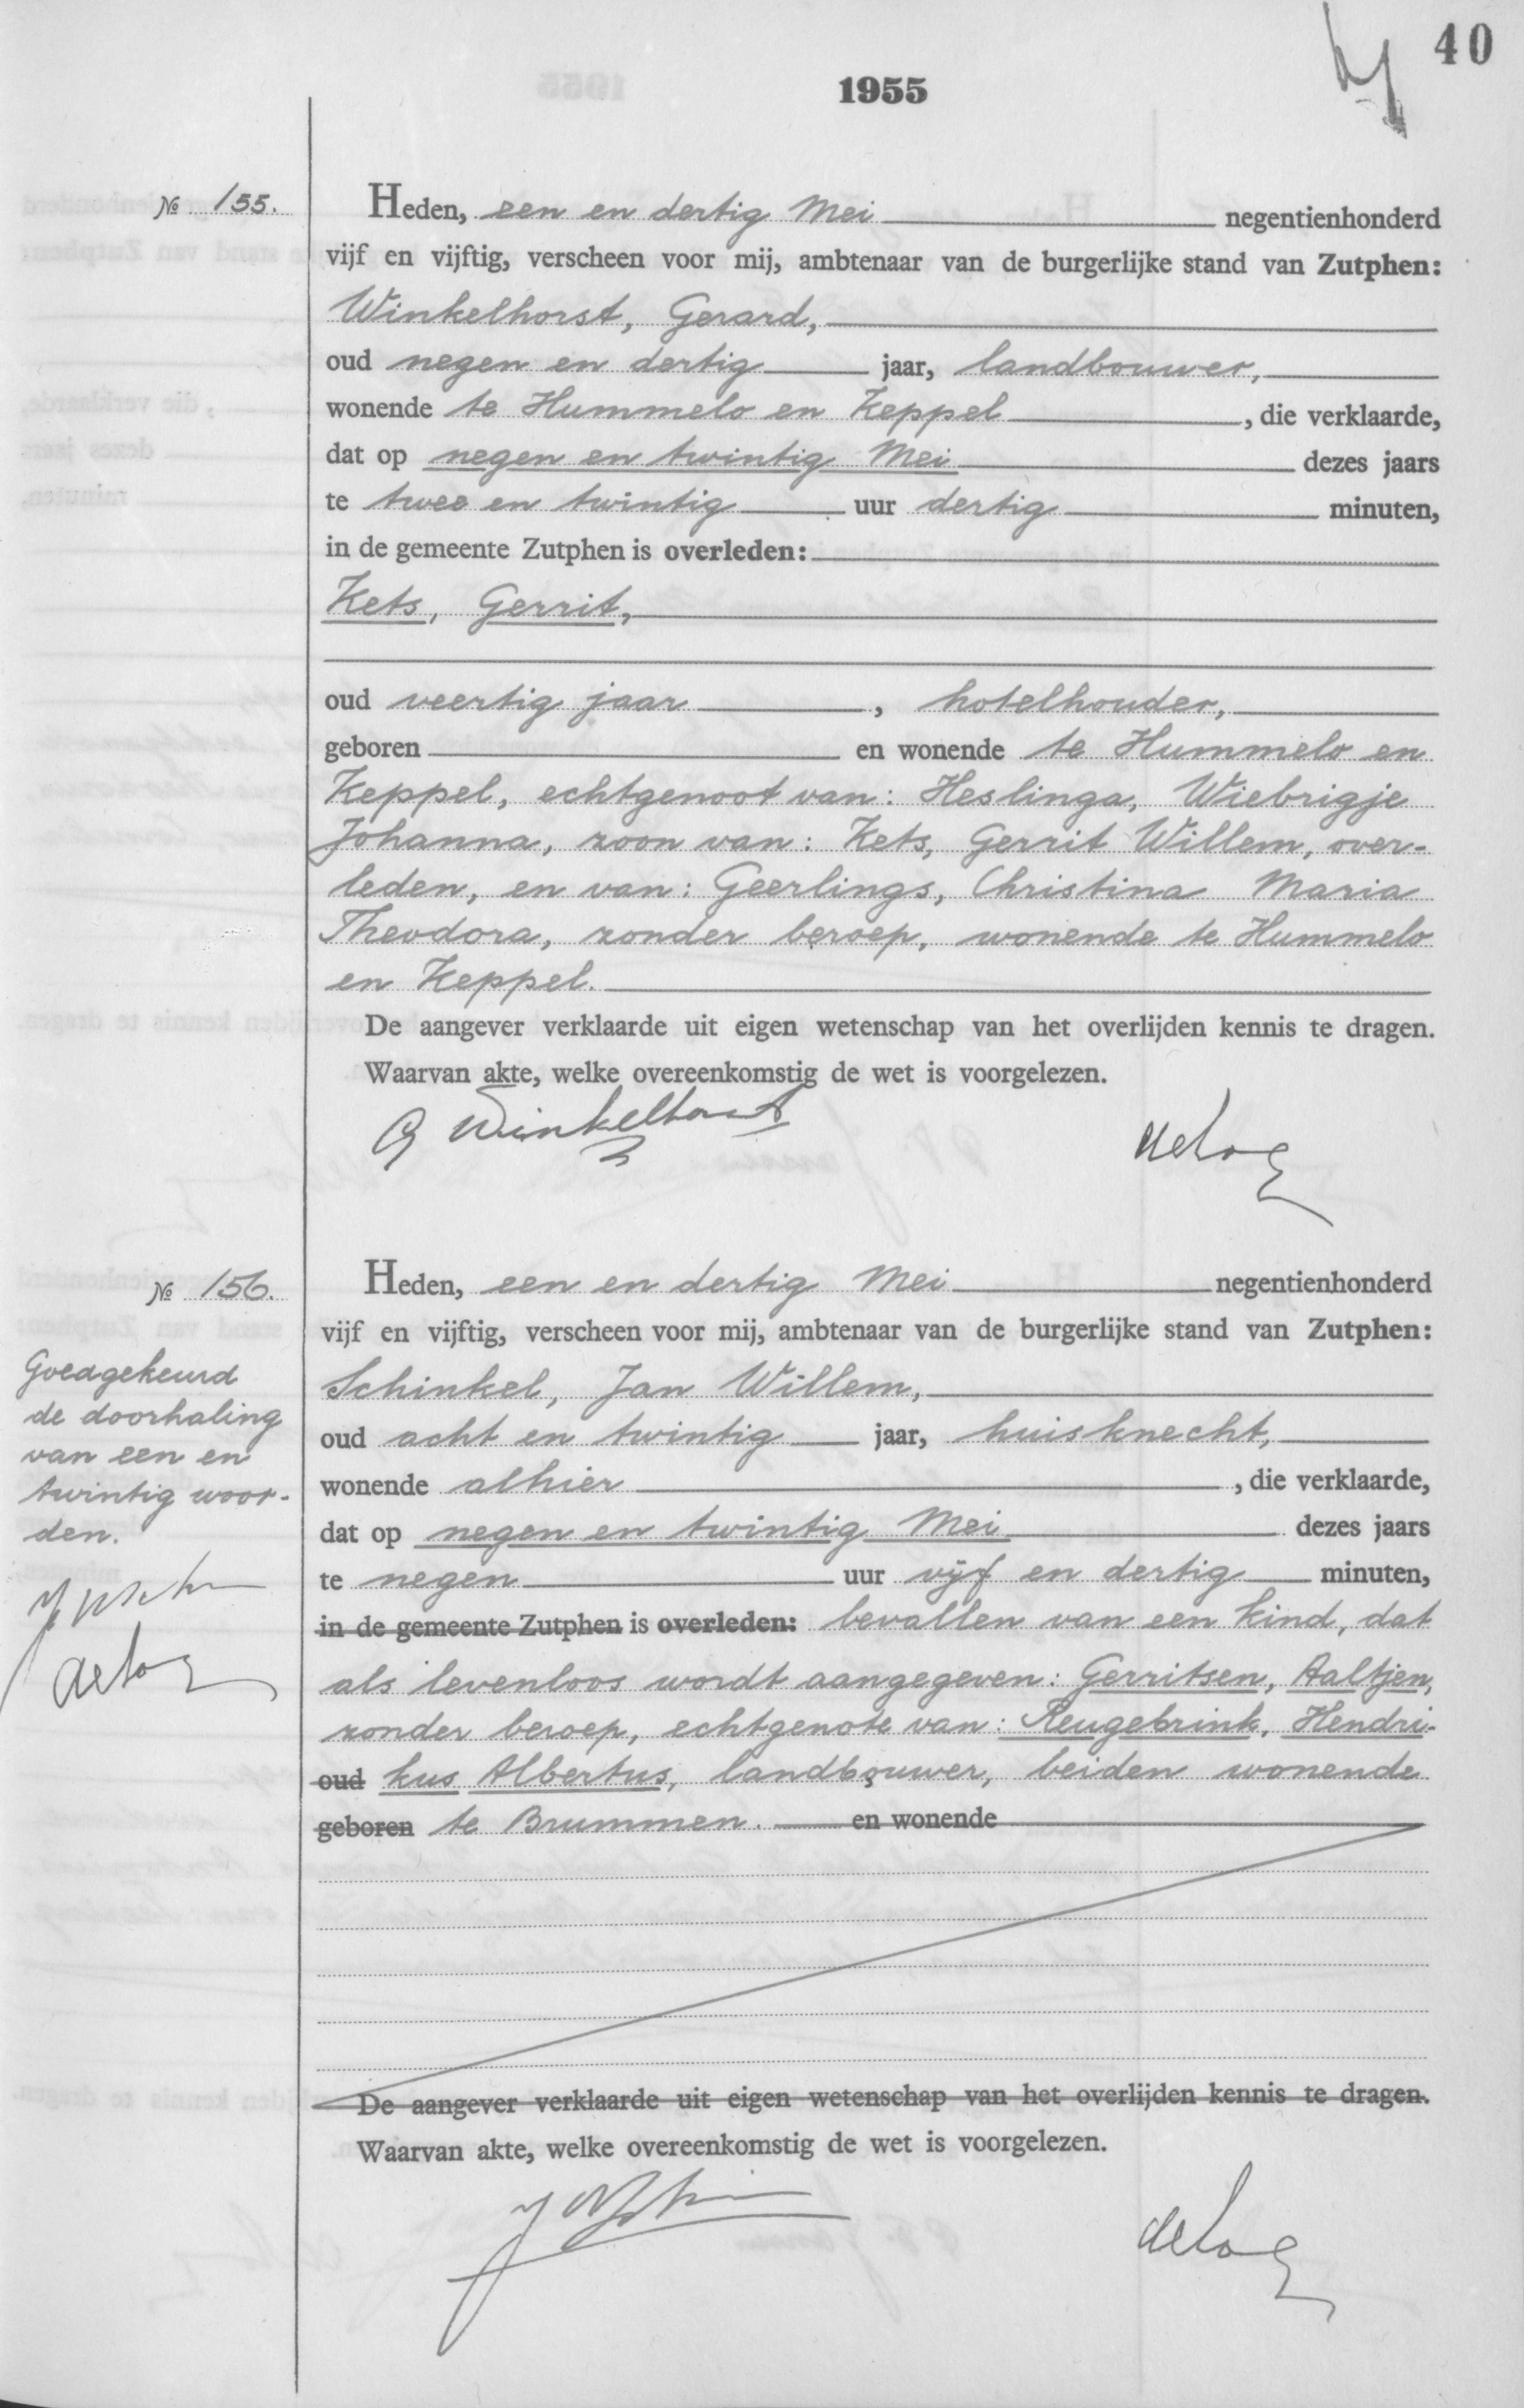 40
1955
№ 155.
Heden, een en dertig Mei negentienhonderd
vijf en vijftig, verscheen voor mij, ambtenaar van de burgerlijke stand van Zutphen:
Winkelhorst, Gerard,
oud negen en dertig jaar, landbouwer,
wonende te Hummelo en Keppel, die verklaarde,
dat op negen en twintig Mei dezes jaars
te twee en twintig uur dertig minuten,
in de gemeente Zutphen is overleden:
Kets, Gerrit,
oud veertig jaar, hotelhouder,
geboren en wonende te Hummelo en
Keppel, echtgenoot van: Heslinga, Wiebrigje
Johanna, zoon van: Kets, Gerrit Willem, over-
leden, en van: Geerlings, Christina Maria
Theodora, zonder beroep, wonende te Hummelo
en Keppel.
De aangever verklaarde uit eigen wetenschap van het overlijden kennis te dragen.
Waarvan akte, welke overeenkomstig de wet is voorgelezen.
G Winkelhorst
№ 156.
Heden, een en dertig Mei negentienhonderd
vijf en vijftig, verscheen voor mij, ambtenaar van de burgerlijke stand van Zutphen:
Schinkel, Jan Willem,
oud acht en twintig jaar, huisknecht,
wonende alhier, die verklaarde,
dat op negen en twintig Mei dezes jaars
te negen uur vijf en dertig minuten,
in de gemeente Zutphen is overleden: bevallen van een kind, dat
als levenloos wordt aangegeven: Gerritsen, Aaltjen,
zonder beroep, echtgenote van: Reugebrink, Hendri-
oud kus Albertus, landbouwer, beiden wonende
geboren te Brummen. en wonende
De aangever verklaarde uit eigen wetenschap van het overlijden kennis te dragen.
Waarvan akte, welke overeenkomstig de wet is voorgelezen.
Goedgekeurd
de doorhaling
van een en
twintig woor-
den.